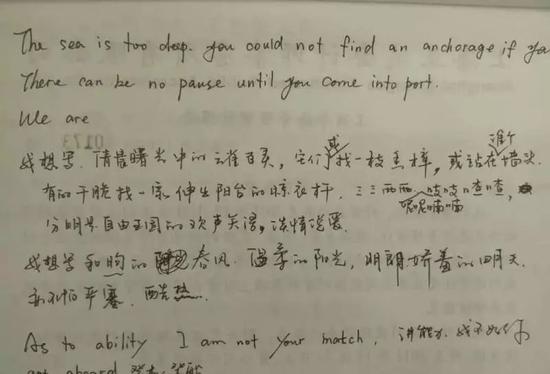 The sea is too deep. you could not find an anchorage if you
There can be no pause until you come into port.
We are
我想写. 清晨曙光中的云雀百灵, 它们或找一枝香樟, 或站在谁个墙头.
有的干脆找一家伸出阳台的晾衣杆. 三三两两 吱吱喳喳,
呢呢喃喃
分明是自由王国的欢声笑语,
我想写和煦的春风. 温柔的阳光, 明朗娇羞的四月天.
酷热.
As to ability I am not your match. 讲能力. 我不如你
get aboard